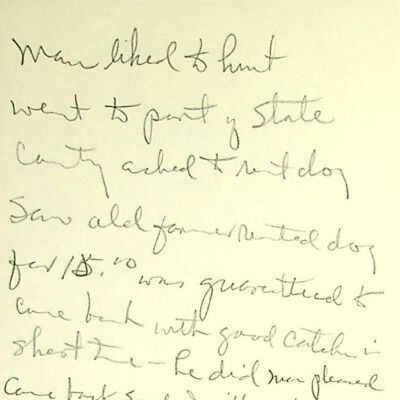 Man liked to hunt
went to part of State
County asked to rent dog
Saw old farmer rented dog
for 15.00 was guaranteed to
come back with good catch in
short time - he did man pleased
Came back